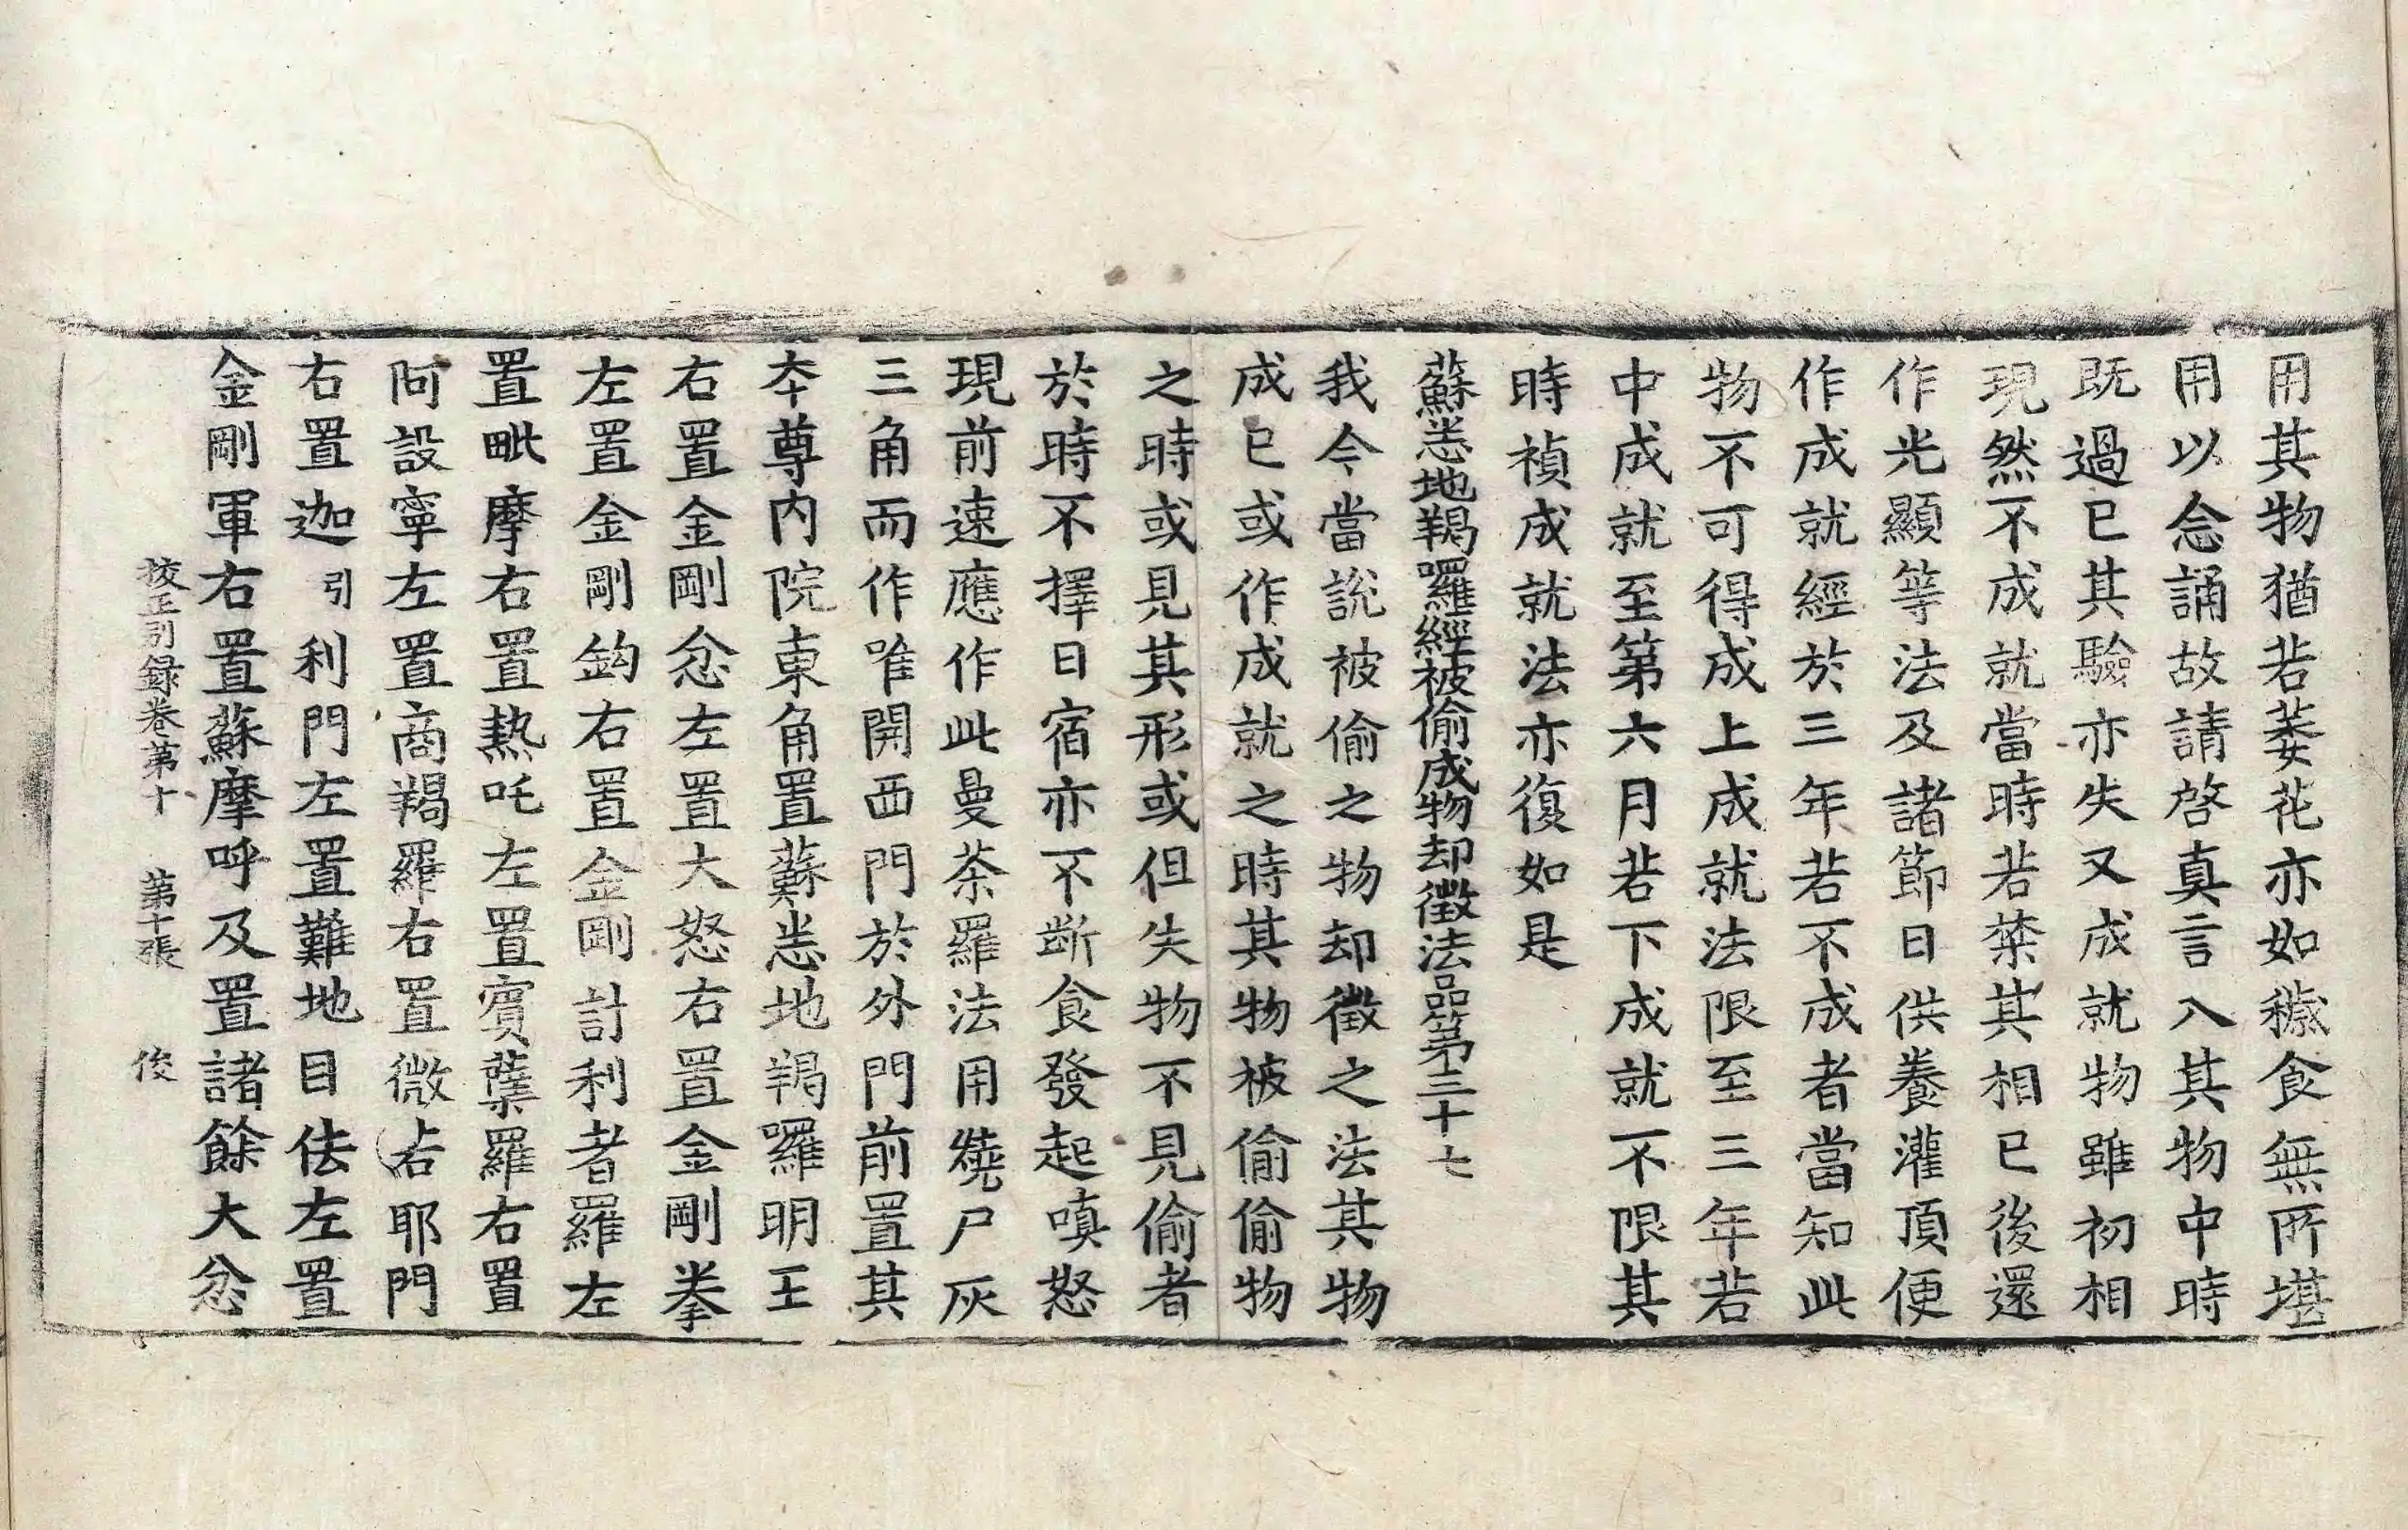 用其物猶若萎花亦如穢食無所堪
用以念誦故請啓真言入其物中時
既過已其驗亦失又成就物雖初相
現然不成就當時若禁其相已後還
作光顯等法及諸節日供養灌頂便
作成就經於三年若不成者當知此
物不可得成上成就法限至三年若
中成就至第六月若下成就不限其
時禎成就法亦復如是
蘇悉地羯囉經被偷成物却徵法品第三十七
我今當說被偷之物却徵之法其物
成已或作成就之時其物被偷偷物
之時或見其形或但失物不見偷者
於時不擇日宿亦不斷食發起嗔怒
現前速應作此曼荼羅法用燒尸灰
三角而作唯開西門於外門前置其
本尊內院東角置蘇悉地羯囉明王
右置金剛忿左置大怒右置金剛拳
左置金剛鈎右置金剛計利者羅左
置毗摩右置熱吒左置賓蘖羅右置
阿設寧左置商羯羅右置微占耶門
右置迦引利門左置難地目佉左置
金剛軍右置蘇摩呼及置諸餘大忿
校正別録卷第十 第十張 俊